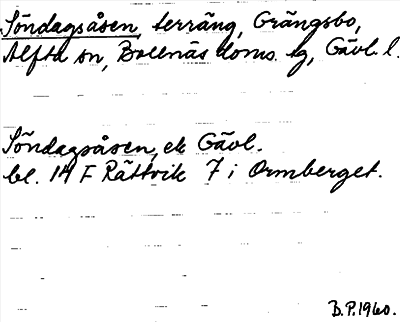 Söndagsåsen, terräng, Grängsbo,
Alfta sn, Bollnäs doms. tg, Gävl. l.
Söndagsåsen, ek Gävl.
bl. 14 F Rättvik 7 i Ormberget.
B.P. 1960.